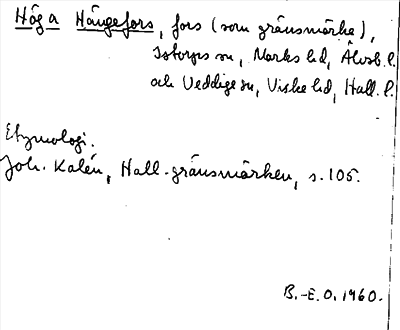 Höga Hängefors, fors (som gränsmärke),
Istorps sn, Marks hd, Älvsb. l.
och Veddige sn, Viske hd, Hall. l.
Etymologi.
Joh. Kalén, Hall. gränsmärken, s. 105.
B.-E. O. 1960.